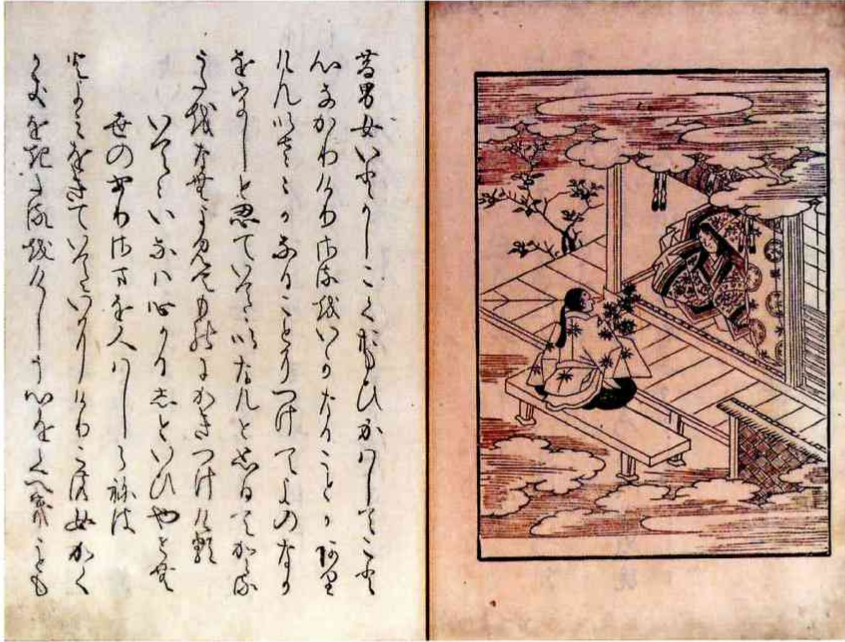 昔男女いとかしこくおもひかはしてこと
心なかりけりさるをいかなることかあり
けんいさゝかなることにつけてよのなか
をうしと思ていてゝいなんと思ひてかゝる
うたをなんよみてものにかきつけける
いてゝいなは心かるしといひやせん
世のありさまを人はしらねは
とよみをきていてゝいにけりこの女かく
かきをきたるをけしう心をくへきことも